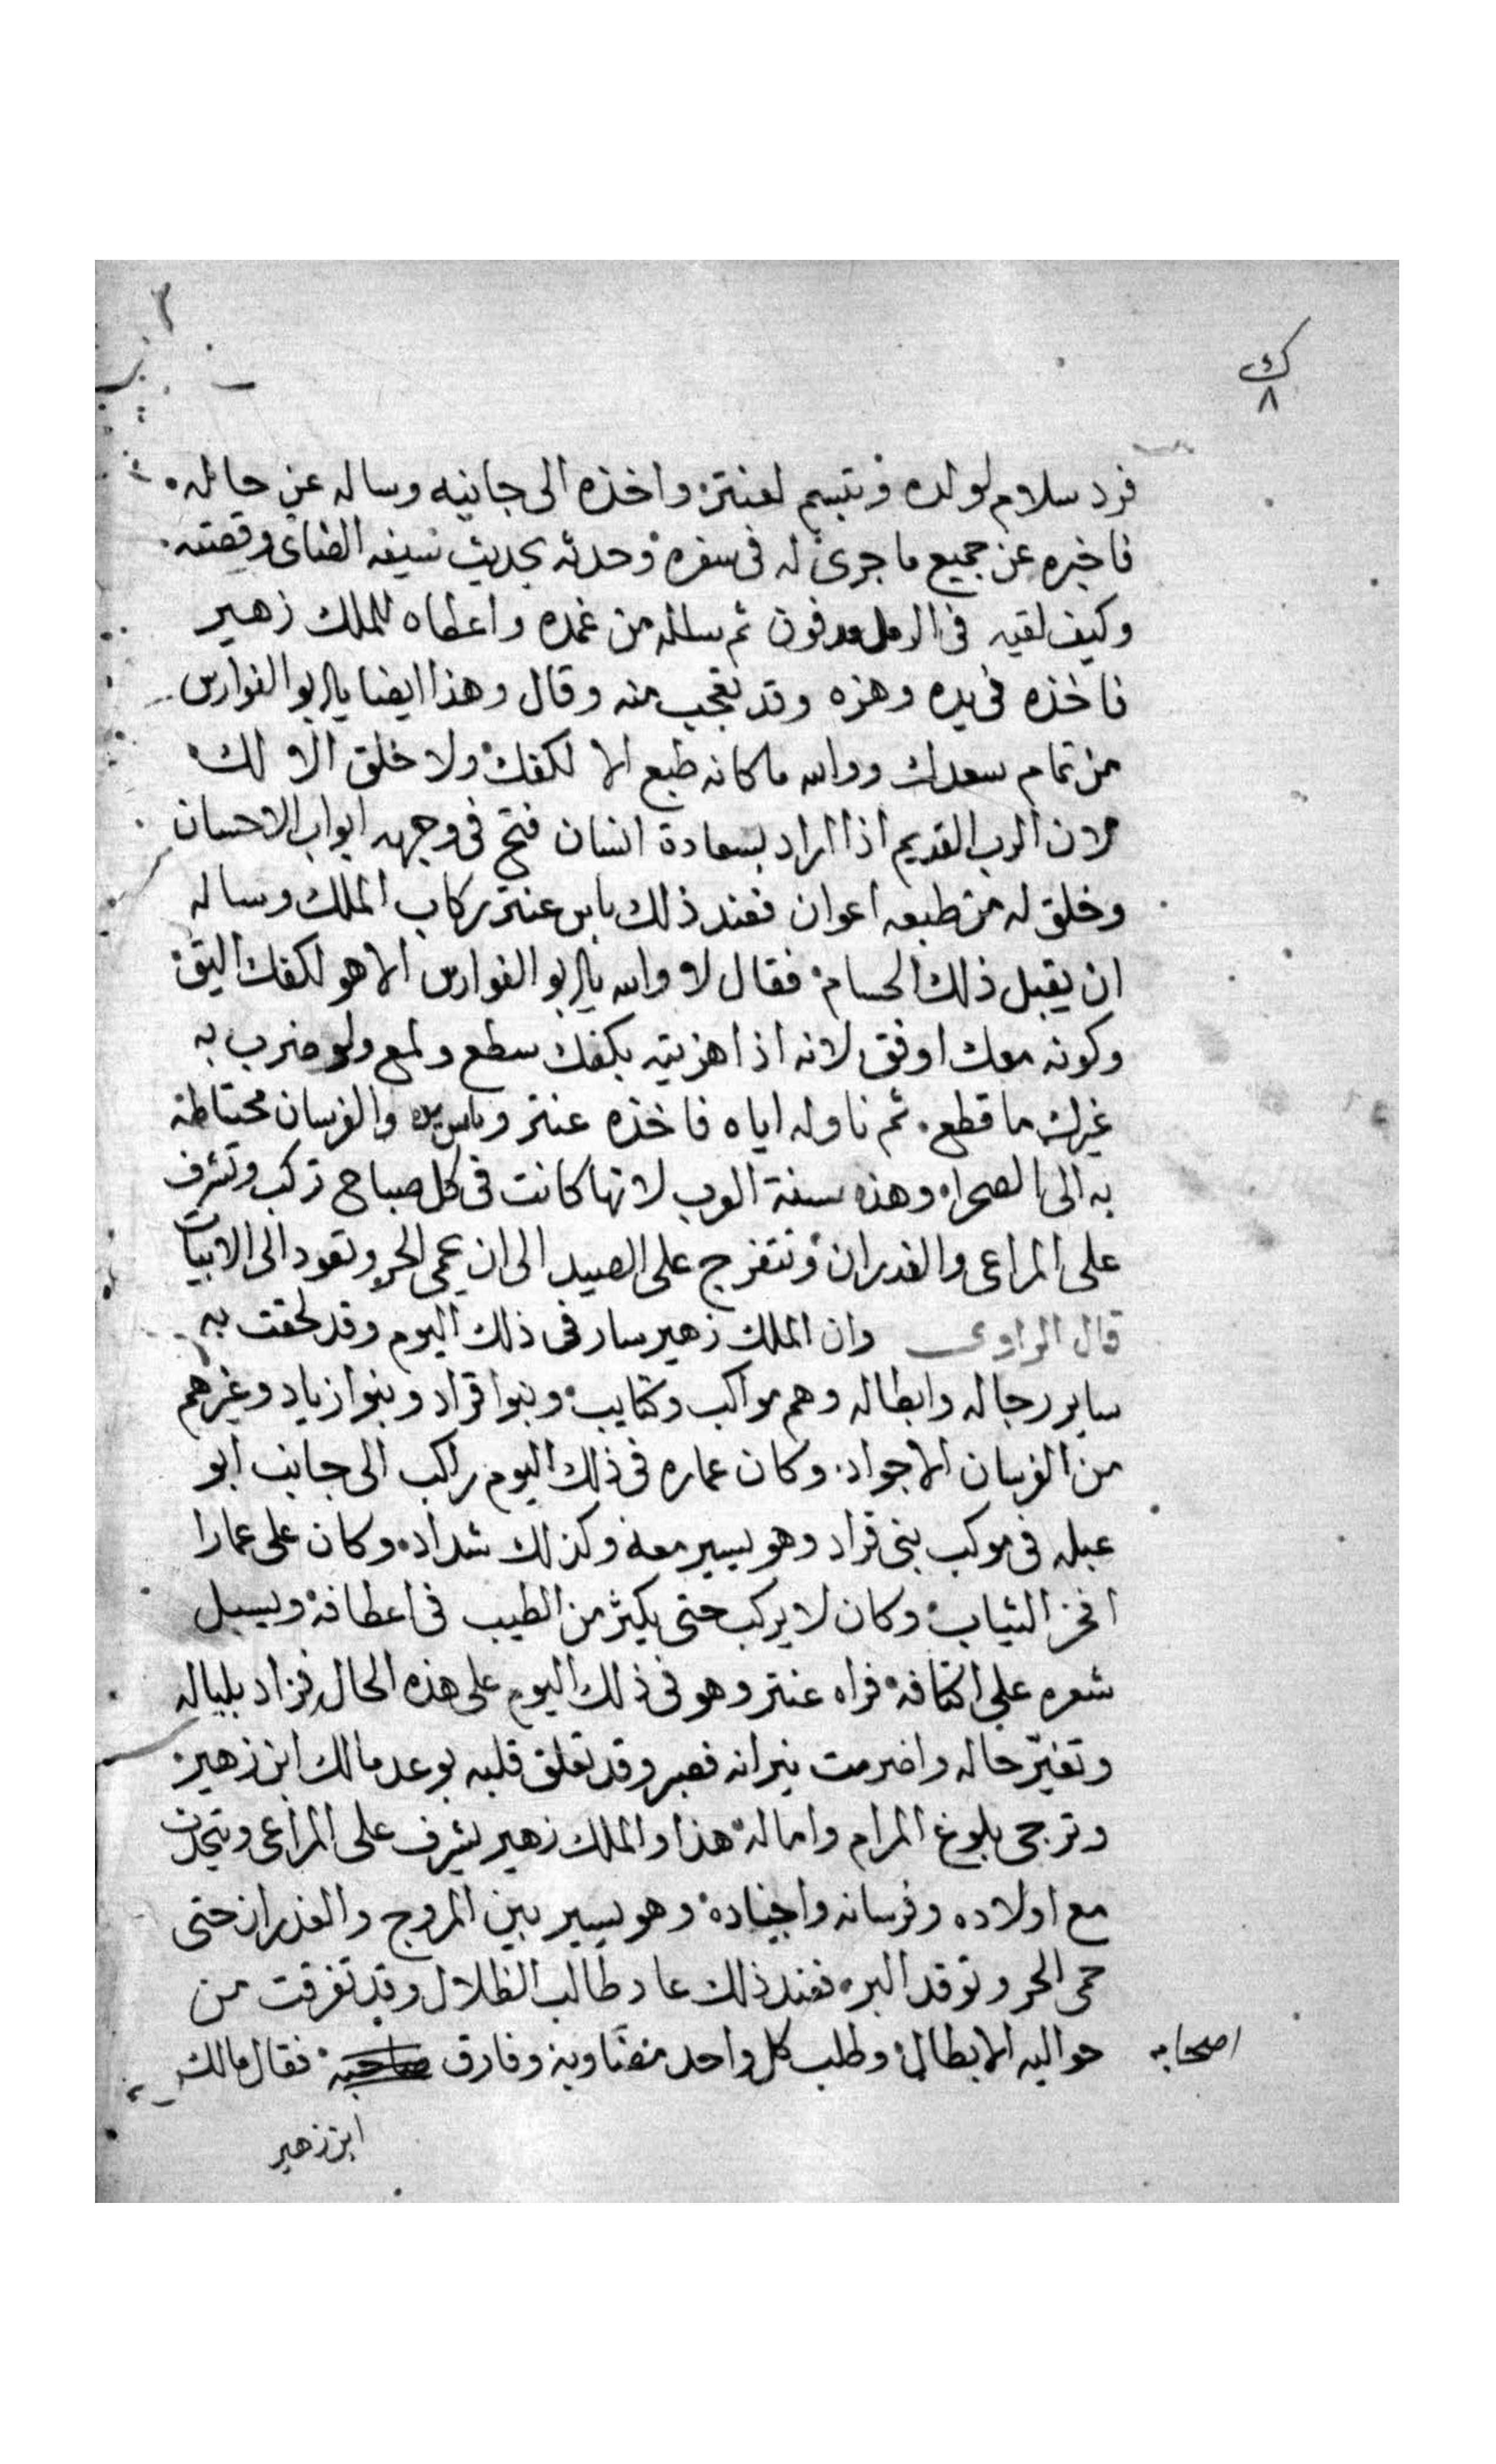 ٣
ك
٨
فرد سلام لولده وتبسم لعنتر واخذه الى جانبه وساله عن حاله
فاخبره عن جميع ما جرى له فى سفره وحدثه بحديث سيفه الضامى وقصته
وكيف لقيه فى الرمل مدفون ثم سلله من غمده واعطاه للملك زهير
فاخذه فى يده وهزه وقد تعجب منه وقال وهذا ايضا يا ابو الفوارس
من تمام سعدك ووالله ما كانه طبع الا لكفك ولا خلق الا لك
لان الرب القديم اذا اراد بسعادة انسان فتح فى وجهه ابواب الاحسان
وخلق له من طبعه اعوان فعند ذلك باس عنتر ركاب الملك وساله
ان يقبل ذلك الحسام فقال لا والله يا ابو الفوارس الا هو لكفك اليق
وكونه معك اوفق لانه اذا هزيته بكفك سطع ولمع ولو ضرب به
غيرك ما قطع ثم ناوله اياه فاخذه عنتر وباس يده والفرسان محتاطة
به الى الصحراء وهذه سنة العرب لانها كانت فى كل صباح تركب وتشرف
على المراعى والغدران وتتفرج على الصيد الى ان يحمى الحر وتعود الى الابيات
قال الراوى وان الملك زهير سار فى ذلك اليوم وقد لحقت به
ساير رجاله وابطاله وهم مواكب وكتايب وبنوا قراد وبنوا زياد وغيرهم
من الفرسان الاجواد وكان عماره فى ذلك اليوم راكب الى جانب ابو
عبله فى موكب بنى قراد وهو يسير معه وكذلك شداد وكان على عمارا
افخر الثياب وكان لا يركب حتى يكثر من الطيب فى اعطافه ويسبل
شعره على اكتافه فراه عنتر وهو فى ذلك اليوم على هذه الحال فزاد بلباله
وتغيّر حاله واضرمت نيرانه فصبر وقد تعلق قلبه بوعد مالك ابن زهير
وترجى بلوغ المرام واماله هذا والملك زهير يشرف على المراعى ويتحدث
مع اولاده وفرسانه واجناده وهو يسير بين المروج والغدران حتى
حمى الحر وتوقد البر فعند ذلك عاد طالب الظلال وقد تفرقت من
حواليه الابطال وطلب كل واحد مضاربه وفارق صاحبه فقال مالك
اصحابه
ابن زهير